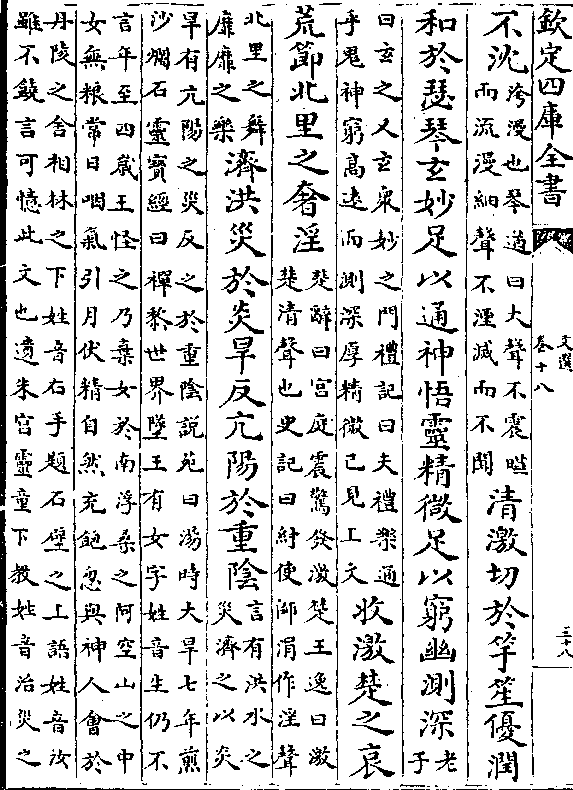 欽定四庫全書
文選
卷十八
三十八
不沈
滂漫也琴道曰大聲不震嘩
而流漫細聲不湮滅而不聞
清激切於竽笙優潤
和於瑟琴玄妙足以通神悟靈精微足以窮幽測深
老
子
曰玄之又玄衆妙之門禮記曰夫禮樂通
乎鬼神窮高遠而測深厚精微已見上文
收激楚之哀
荒節北里之奢淫
楚辭曰宮庭震驚發激楚王逸曰激
楚清聲也史記曰紂使師涓作淫聲
北里之舞
靡靡之樂
濟洪災於炎旱反亢陽於重陰
言有洪水之
災濟之以炎
旱有亢陽之災反之於重陰說苑曰湯時大旱七年煎
沙爛石靈寶經曰禪黎世界墜王有女字姓音生仍不
言年至四歲王怪之乃棄女於南浮桑之阿空山之中
女無粮常日咽氣引月伏精自然充飽忽與神人會於
丹陵之舍柏林之下姓音右手題石壁之上語姓音汝
雖不饒言可憶此文也遺朱宮靈童下教姓音治災之